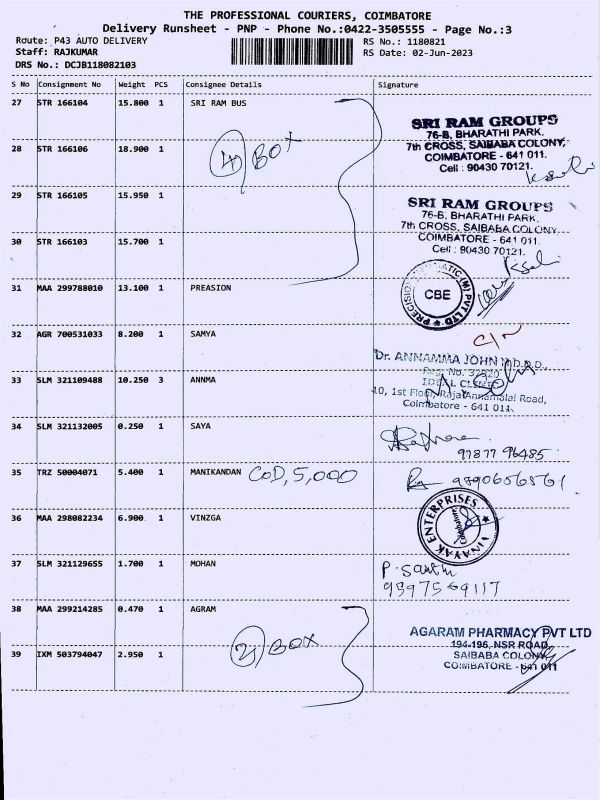 THE PROFESSIONAL COURIERS, COIMBATORE
Delivery Runsheet - PNP - Phone No.:0422-3505555 - Page No.:3
Route: P43 AUTO DELIVERY RS No.: 1180821
Staff: RAJKUMAR RS Date: 02-Jun-2023
DRS No.: DCJB118082103
S No Consignment No Weight PCS Consignee Details Signature
27 STR 166104 15.800 1 SRI RAM BUS
SRI RAM GROUPS
76-B, BHARATHI PARK.
7th CROSS, SAIBABA COLONY,
COIMBATORE - 641 011.
Cell : 90430 70121.
28 STR 166106 18.900 1
4) BOX
29 STR 166105 15.950 1
SRI RAM GROUPS
76-B, BHARATHI PARK.
7th CROSS, SAIBABA COLONY
COIMBATORE - 641 011.
Cell : 90430 70121.
30 STR 166103 15.700 1
31 MAA 299788010 13.100 1 PREASION
CBE
32 AGR 700531033 8.200 1 SAMYA
C/N
33 SLM 321109488 10.250 3 ANNMA
Dr. ANNAMMA JOHN M.D.D.D.,
Reg. No. 37920
IDEAL CLINIC
10, 1st Floor, Raja Annamalai Road,
Coimbatore - 641 011.
34 SLM 321132005 0.250 1 SAYA
97877 96485
35 TRZ 50004071 5.400 1 MANIKANDAN COD, 5,000
9790656561
36 MAA 298082234 6.900 1 VINZGA
VINAYAK ENTERPRISES
Coimbatore
37 SLM 321129655 1.700 1 MOHAN
P. Santhi
9397569117
38 MAA 299214285 0.470 1 AGRAM
2) BOX
AGARAM PHARMACY PVT LTD
194-196, NSR ROAD,
SAIBABA COLONY
COIMBATORE - 641 011
39 IXM 503794047 2.950 1